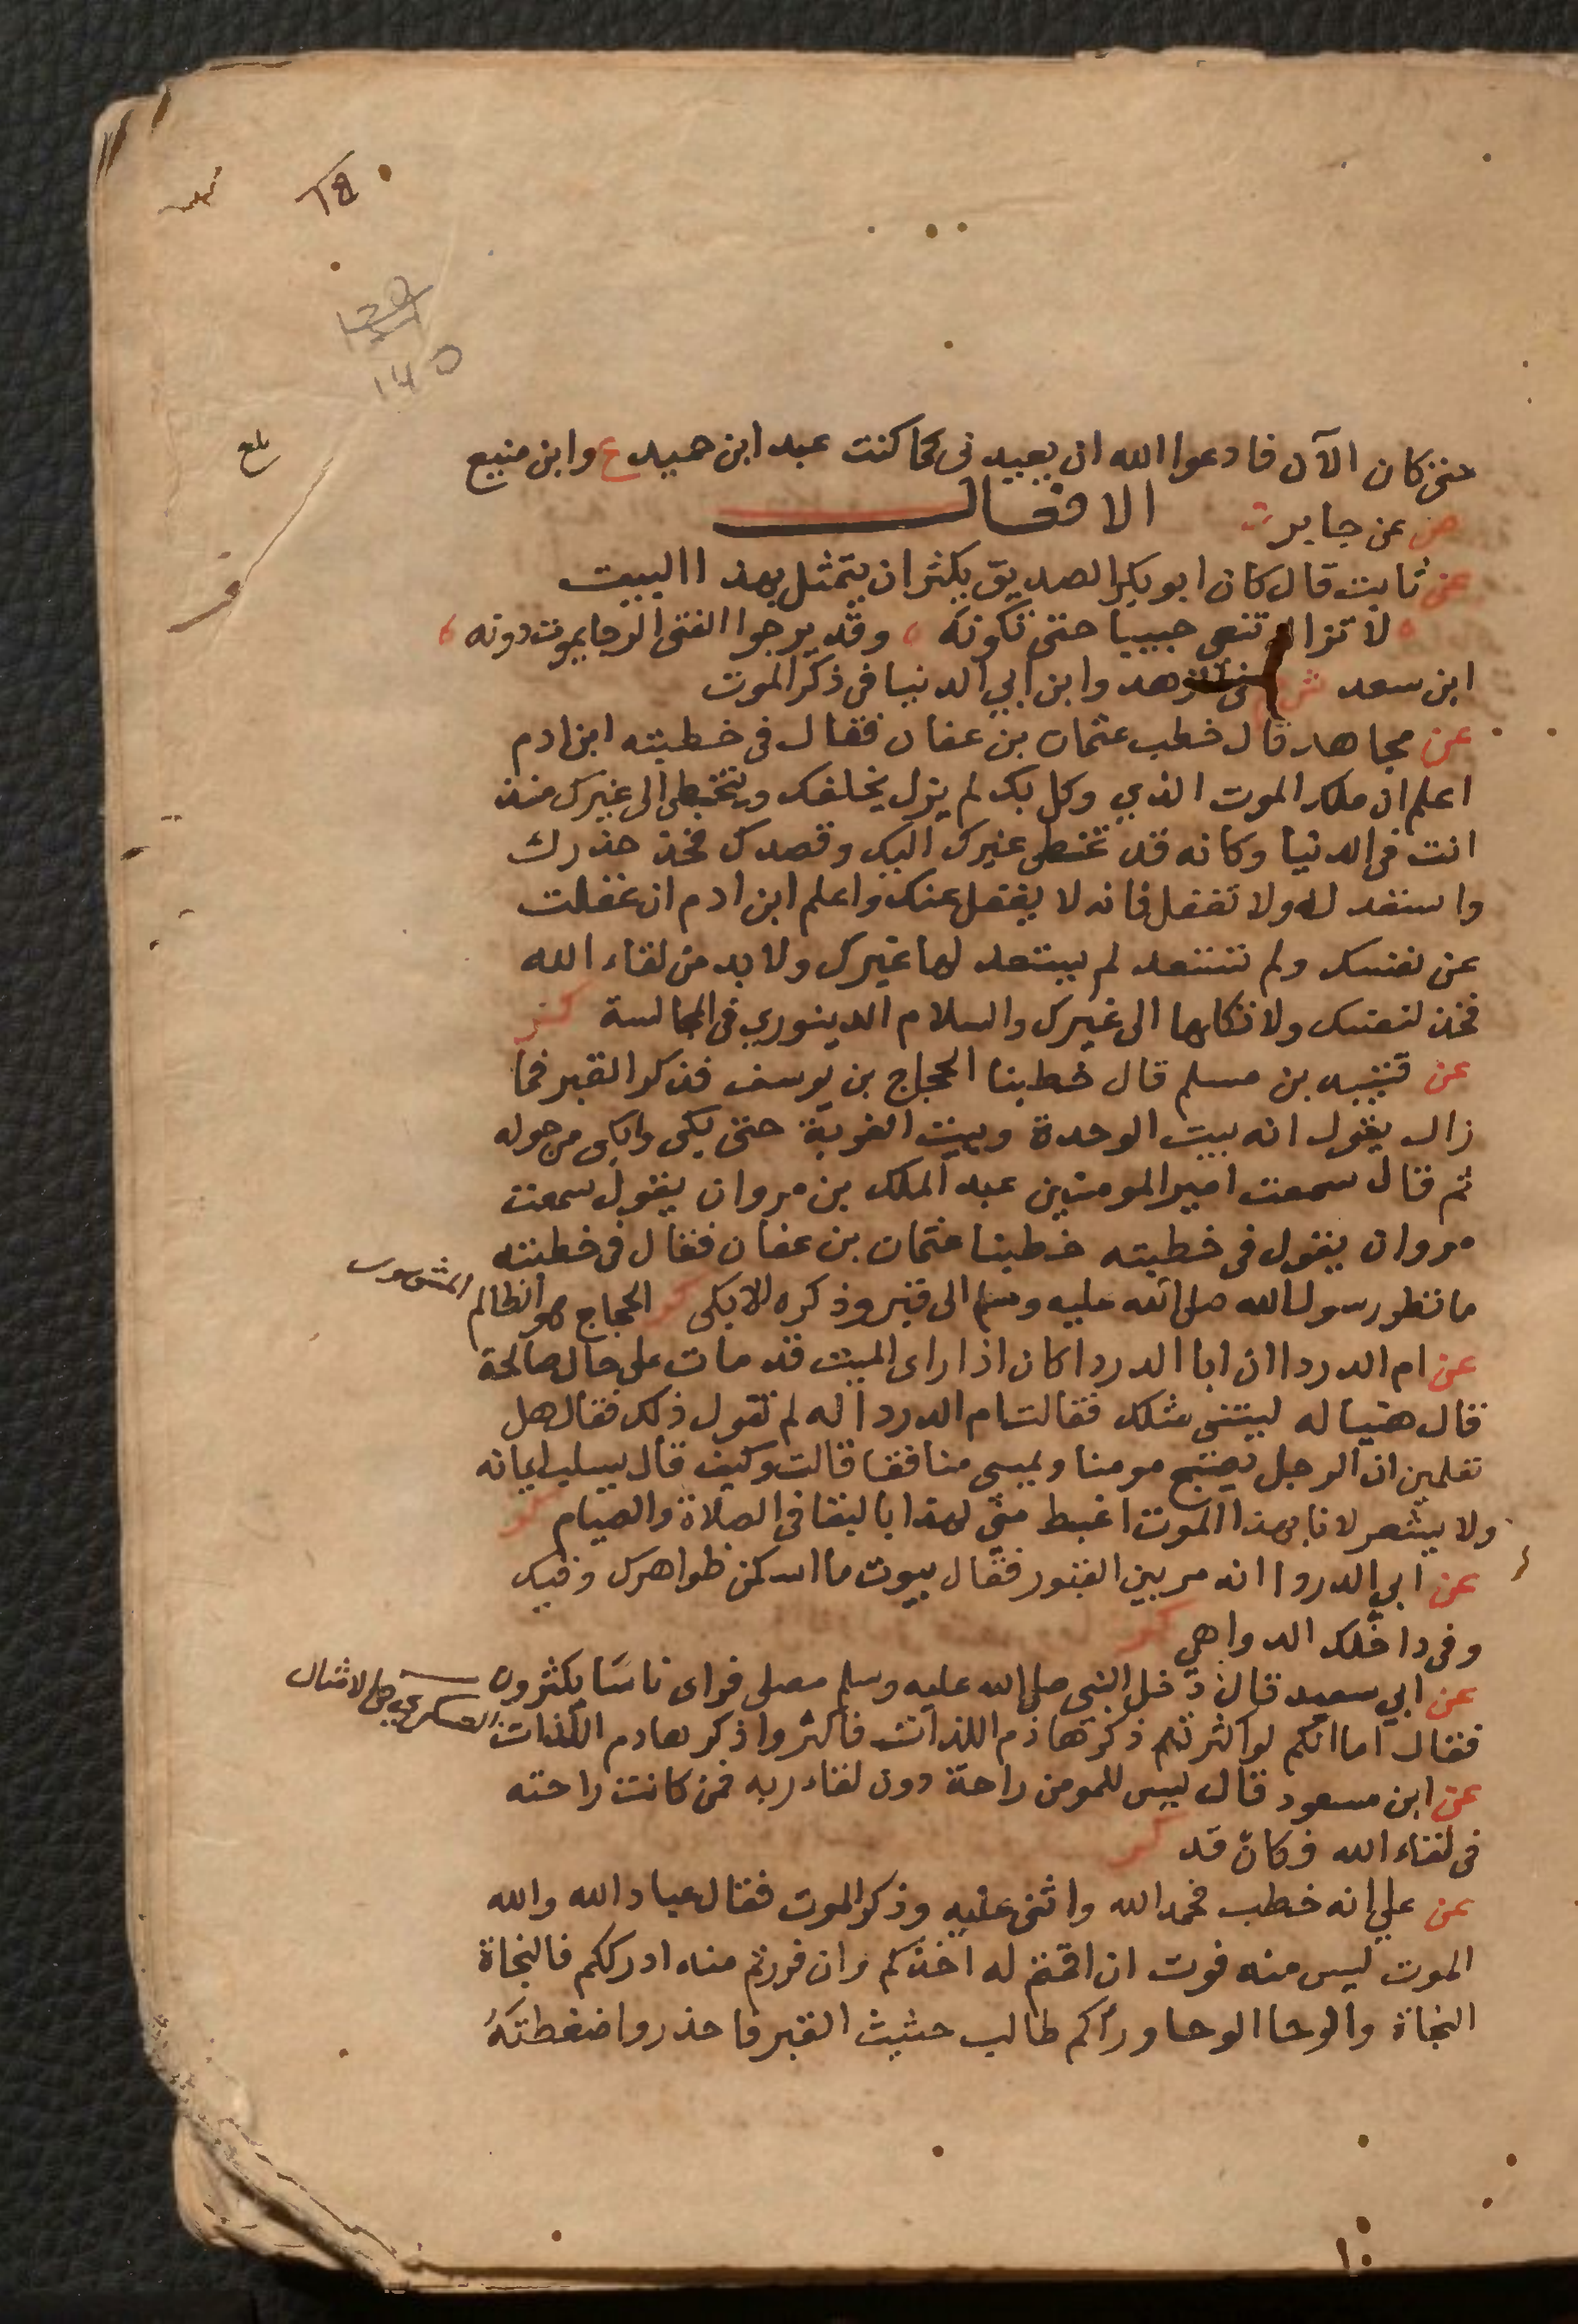 حتى كان الآن فادعوا الله ان يعيدنى كما كنت عبد ابن حميد ع وابن منيع
ض عن جابر الافعال
عن ثابت قال كان ابو بكر الصديق يكثر ان يتمثل بهذا البيت
لا تزال تنعى حبيبا حتى تكونه وقد يرجوا الفتى الرجا يموت دونه
ابن سعد ش حم فى الزهد وابن ابي الدنيا فى ذكر الموت
عن مجاهد قال خطب عثمان بن عفان فقال فى خطبته ابن ادم
اعلم ان ملك الموت الذي وكل بك لم يزل يخلفك ويتخطى الى غيرك منذ
انت فى الدنيا وكانه قد تخطى غيرك اليك وقصدك فخذ حذرك
واستعد له ولا تغفل فانه لا يغفل عنك واعلم ابن ادم ان غفلت
عن نفسك ولم تستعد لم يستعد لها غيرك ولا بد من لقاء الله
فخذ لنفسك ولا تكلها الى غيرك والسلام الدينوري فى المجالسة كر
عن قتيبه بن مسلم قال خطبنا الحجاج بن يوسف فذكر القبر فما
زال يقول انه بيت الوحدة وبيت الغربة حتى بكى وابكى من حوله
ثم قال سمعت امير المومنين عبد الملك بن مروان يقول سمعت
مروان يقول فى خطبته خطبنا عثمان بن عفان فقال فى خطبته
ما نظر رسول الله صلى الله عليه وسلم الى قبر وذكره الا بكى كر الحجاج هو الظالم المشهور
عن ام الدردا ان ابا الدردا كان اذا راى الميت قد مات على حال صالحة
قال هنيا له ليتنى مثلك فقالت ام الدردا له لم تقول ذلك فقال هل
تعلمين ان الرجل يصبح مومنا ويمسى منافقا قالت وكيف قال يسلب ايمانه
ولا يشعر لانا بهذا الموت اغبط منى لهذا بالبقا فى الصلاة والصيام كر
عن ابي الدردا انه مر بين القبور فقال بيوت ما اسكن ظواهرك وفيك
وفى داخلك الدواهي كر
عن ابي سعيد قال دخل النبي صلى الله عليه وسلم مصلى فراى ناسا يكثرون
فقال اما انكم لو اكثرتم ذكر هاذم اللذات فاكثروا ذكر هادم اللذات العسكري فى الامثال
عن ابن مسعود قال ليس للمومن راحة دون لقاء ربه فمن كانت راحته
فى لقاء الله فكان قد كر
عن علي انه خطب فحمد الله واثنى عليه وذكر الموت فقال عباد الله والله
الموت ليس منه فوت ان اقمتم له اخذكم وان فررتم منه ادرككم فالنجاة
النجاة والوحا الوحا وراكم طالب حثيث القبر فاحذروا ضغطته
بلغ
١٤٥